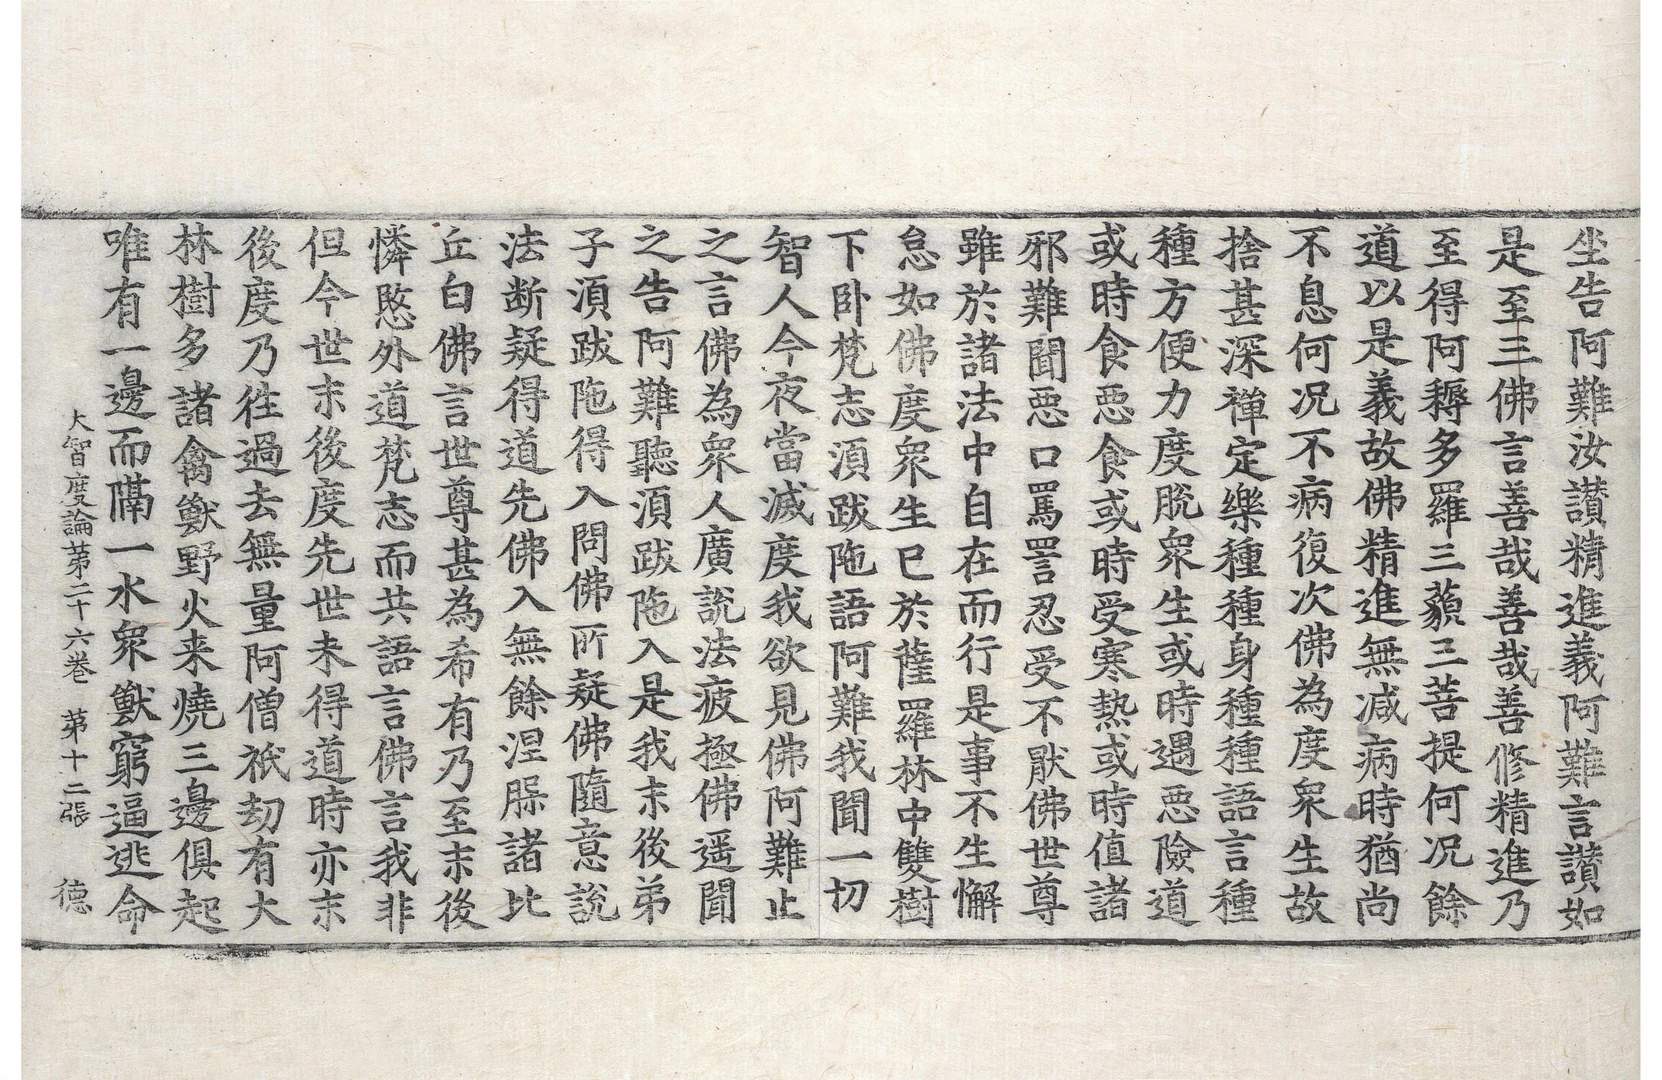 坐告阿難汝讃精進義阿難言讃如
是至三佛言善哉善哉善修精進乃
至得阿耨多羅三藐三菩提何況餘
道以是義故佛精進無減病時猶尚
不息何況不病復次佛為度衆生故
捨甚深禪定樂種種身種種語言種
種方便力度脫衆生或時遇惡險道
或時食惡食或時受寒熱或時值諸
邪難聞惡口罵詈忍受不厭佛世尊
雖於諸法中自在而行是事不生懈
怠如佛度衆生已於薩羅林中雙樹
下卧梵志湏跋陁語阿難我聞一切
智人今夜當滅度我欲見佛阿難止
之言佛為衆人廣說法疲極佛遥聞
之告阿難聽湏跋陁入是我末後弟
子湏跋陁得入問佛所疑佛隨意說
法断疑得道先佛入無餘涅槃諸比
丘白佛言世尊甚為希有乃至末後
憐愍外道梵志而共語言佛言我非
但今世末後度先世未得道時亦末
後度乃往過去無量阿僧祇劫有大
林樹多諸禽獸野火来燒三邊俱起
唯有一邊而隔一水衆獸窮逼逃命
大智度論第二十六卷 第十二張 德